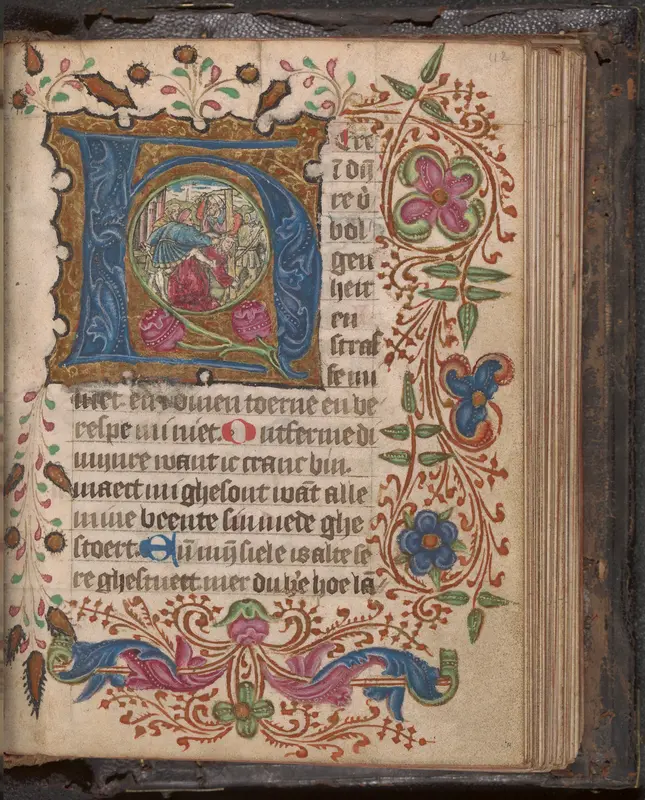 H
Ere
ī dīn
re v̄
bol
gen
heit
en
straf
fe mi
niet en dinen toerne en be
respe mi niet. Ontferme di
mijnre want ic cranc bin.
maect mi ghesont wāt alle
mine beente sijn mede ghe
stoert. Eñ mijn siele is alte se
re ghestuert mer du hēre hoe lā
112